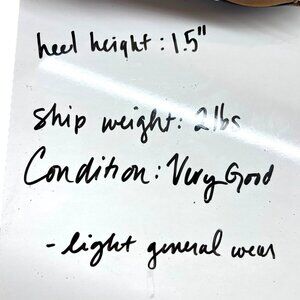 heel height: 1.5"
Ship weight: 2lbs
Condition: Very Good
- light general wear